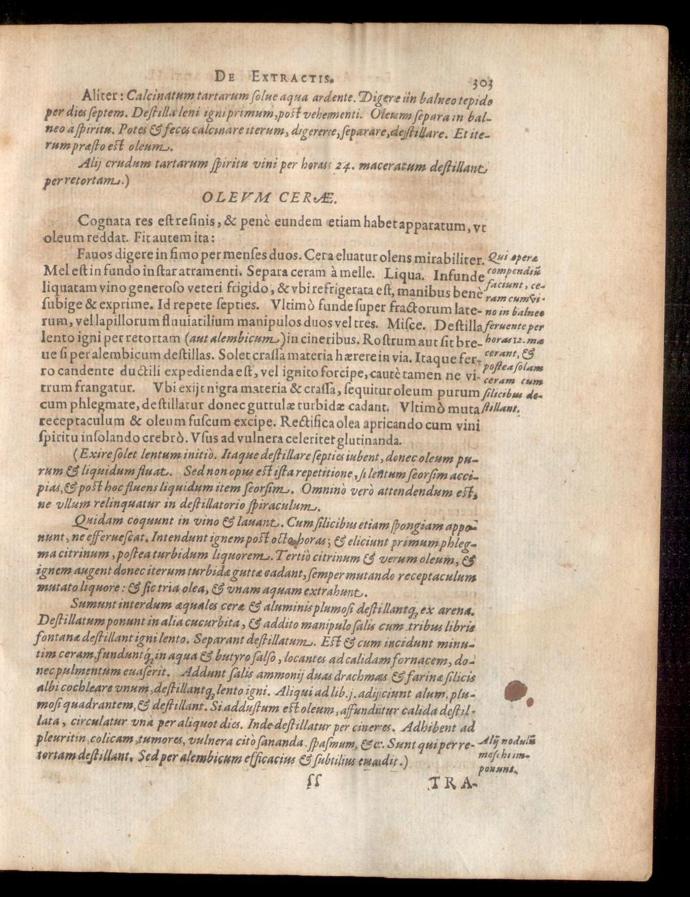 DE EXTRACTIS.
303
Aliter: Calcinatum tartarum solue aqua ardente. Digere in balneo tepido
per dies septem. Destilla leni igni primum, post vehementi. Oleum separa in bal-
neo à spiritu. Potes & feces calcinare iterum, digerere, separare, destillare. Et ite-
rum præsto est oleum.
Alij crudum tartarum spiritu vini per horas 24. maceratum destillant
per retortam.)
OLEVM CERÆ.
Cognata res est resinis, & penè eundem etiam habet apparatum, vt
oleum reddat. Fit autem ita:
Fauos digere in fimo per menses duos. Cera eluatur olens mirabiliter.
Mel est in fundo instar atramenti. Separa ceram à melle. Liqua. Infunde
liquatam vino generoso veteri frigido, & vbi refrigerata est, manibus benè
subige & exprime. Id repete septies. Vltimò funde super fractorum late-
rum, vel lapillorum fluuiatilium manipulos duos vel tres. Misce. Destilla
lento igni per retortam (aut alembicum) in cineribus. Rostrum aut sit bre-
ue si per alembicum destillas. Solet crassa materia hærere in via. Itaque fer-
ro candente ductili expedienda est, vel ignito forcipe, cautè tamen ne vi-
trum frangatur. Vbi exijt nigra materia & crassa, sequitur oleum purum
cum phlegmate, destillatur donec guttulæ turbidæ cadant. Vltimò muta
receptaculum & oleum fuscum excipe. Rectifica olea apricando cum vini
spiritu insolando crebrò. Vsus ad vulnera celeriter glutinanda.
Qui operæ
compendiũ
faciunt, ce-
ram cum vi-
no in balneo
feruente per
horas 12. ma
cerant, &
postea solam
ceram cum
silicibus de-
stillant.
(Exire solet lentum initiò. Itaque destillare septies iubent, donec oleum pu-
rum & liquidum fluat. Sed non opus est ista repetitione, si lentum seorsim acci-
pias, & post hoc fluens liquidum item seorsim. Omninò verò attendendum est,
ne vllum relinquatur in destillatorio spiraculum.
Quidam coquunt in vino & lauant. Cum silicibus etiam spongiam appo-
nunt, ne efferuescat. Intendunt ignem post octo horas; & eliciunt primum phleg-
ma citrinum, postea turbidum liquorem. Tertiò citrinum & verum oleum, &
ignem augent donec iterum turbidæ guttæ cadant, semper mutando receptaculum
mutato liquore: & sic tria olea, & vnam aquam extrahunt.
Sumunt interdum æquales ceræ & aluminis plumosi destillantq; ex arena.
Destillatum ponunt in alia cucurbita, & addito manipulo salis cum tribus libris
fontanæ destillant igni lento. Separant destillatum. Est & cum incidunt minu-
tim ceram, funduntq; in aqua & butyro salso, locantes ad calidam fornacem, do-
nec pulmentum euaserit. Addunt salis ammonij duas drachmas & farinæ silicis
albi cochleare vnum, destillantq; lento igni. Aliqui ad lib. j. adijciunt alum. plu-
mosi quadrantem, & destillant. Si adustum est oleum, affunditur calida destil-
lata, circulatur vna per aliquot dies. Inde destillatur per cineres. Adhibent ad
pleuritin, colicam, tumores, vulnera citò sananda, spasmum, &c. Sunt qui per re-
tortam destillant. Sed per alembicum efficacius & subtilius euadit.)
Alij nodulũ
moschi im-
ponunt.
ſſ
TRA-